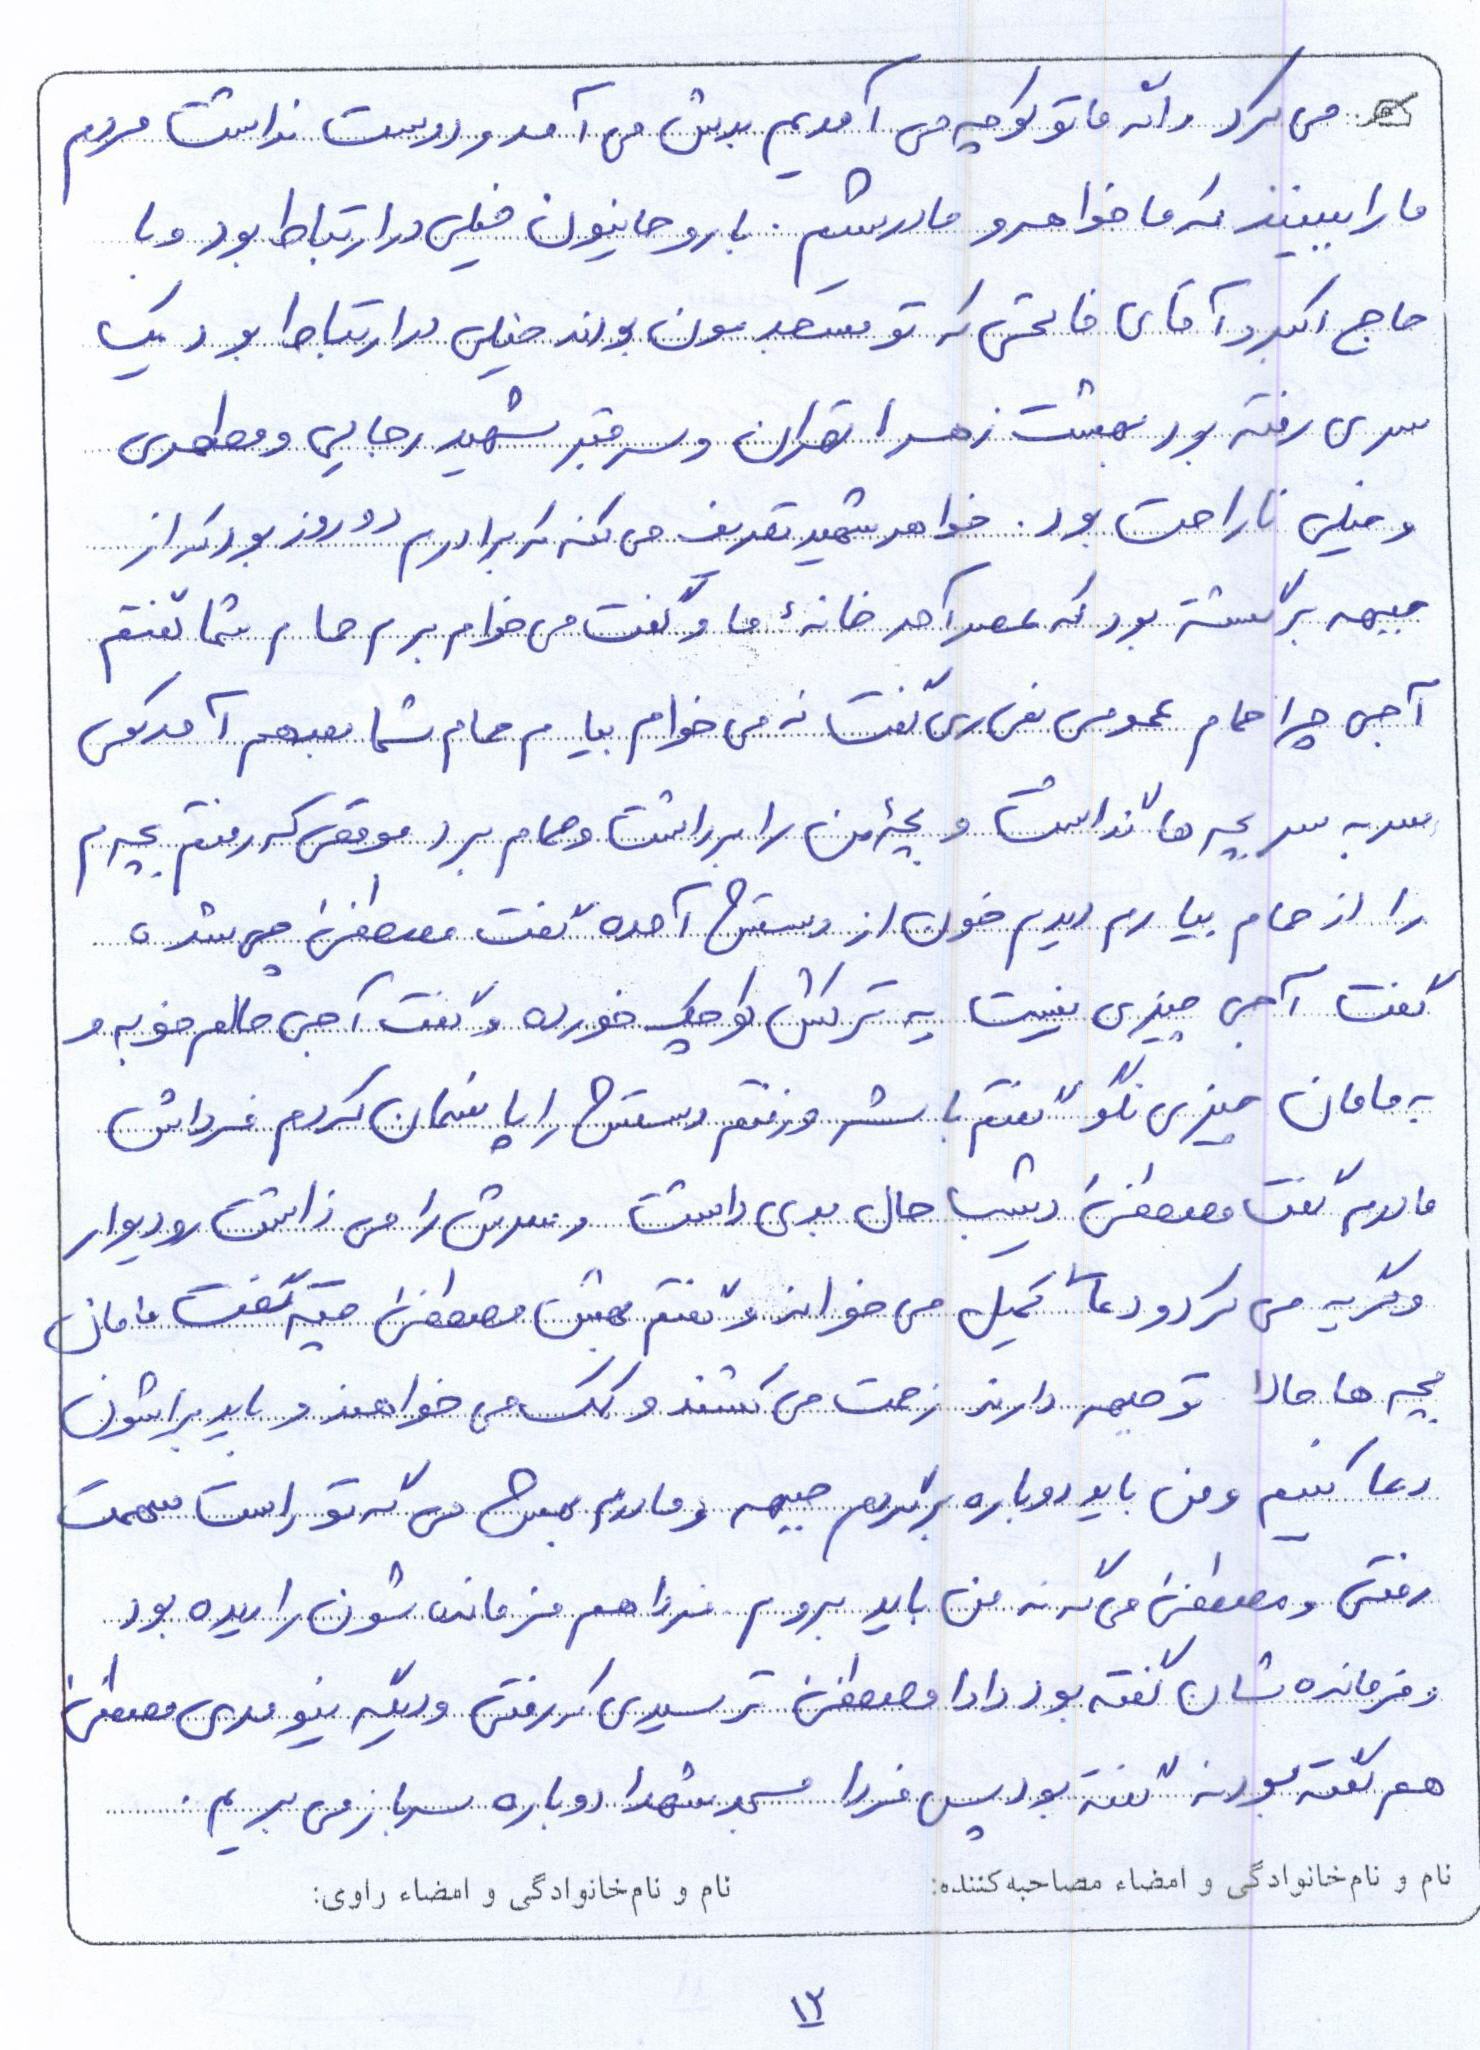 می کرد و اگه ما تو کوچه می آمدیم بدش می آمد و دوست نداشت مردم
ما را ببینند که ما خواهر و مادرشیم. با روحانیون خیلی در ارتباط بود و با
حاج اکبر و آقای فاتحی که تو مسجدمون بودند خیلی در ارتباط بود یک
سری رفته بود بهشت زهرا تهران و سر قبر شهید رجایی و مطهری
و خیلی ناراحت بود. خواهر شهید تعریف می کنه که برادرم دو روز بود که از
جبهه برگشته بود که عصر آمد خانهٔ ما و گفت می خوام برم حمام شما گفتم
آجی چرا حمام عمومی نمی ری گفت نه می خوام بیام حمام شما بعد هم آمد کمی
سر به سر بچه ها گذاشت و بچهٔ من را برداشت و حمام برد موقعی که رفتم بچه م
را از حمام بیارم دیدم خون از دستش آمده گفت مصطفی چی شده
گفت آجی چیزی نیست یه ترکش کوچک خورده و گفت آجی حالم خوبه و
به مامان چیزی نگو گفتم باشه و رفتم دستش را پانسمان کردم فرداش
مادرم گفت مصطفی دیشب حال بدی داشت و سرش را می ذاشت رو دیوار
و گریه می کرد و دعای کمیل می خواند و گفتم بهش مصطفی چیته گفت مامان
بچه ها حالا تو جبهه دارند زحمت می کشند و کمک می خواهند و باید براشون
دعا کنیم و من باید دوباره برگردم جبهه و مادرم بهش می گه تو راست سهمت
رفتی و مصطفی می گه نه من باید بروم. فردا هم فرمانده شون را دیده بود
و فرمانده شان گفته بود دادا مصطفی ترسیدی که رفتی و دیگه نیومدی مصطفی
هم گفته بود نه گفته بود پس فردا مسجد شهدا دوباره سرباز می بریم.
نام و نام خانوادگی و امضاء مصاحبه کننده: نام و نام خانوادگی و امضاء راوی:
۱۲